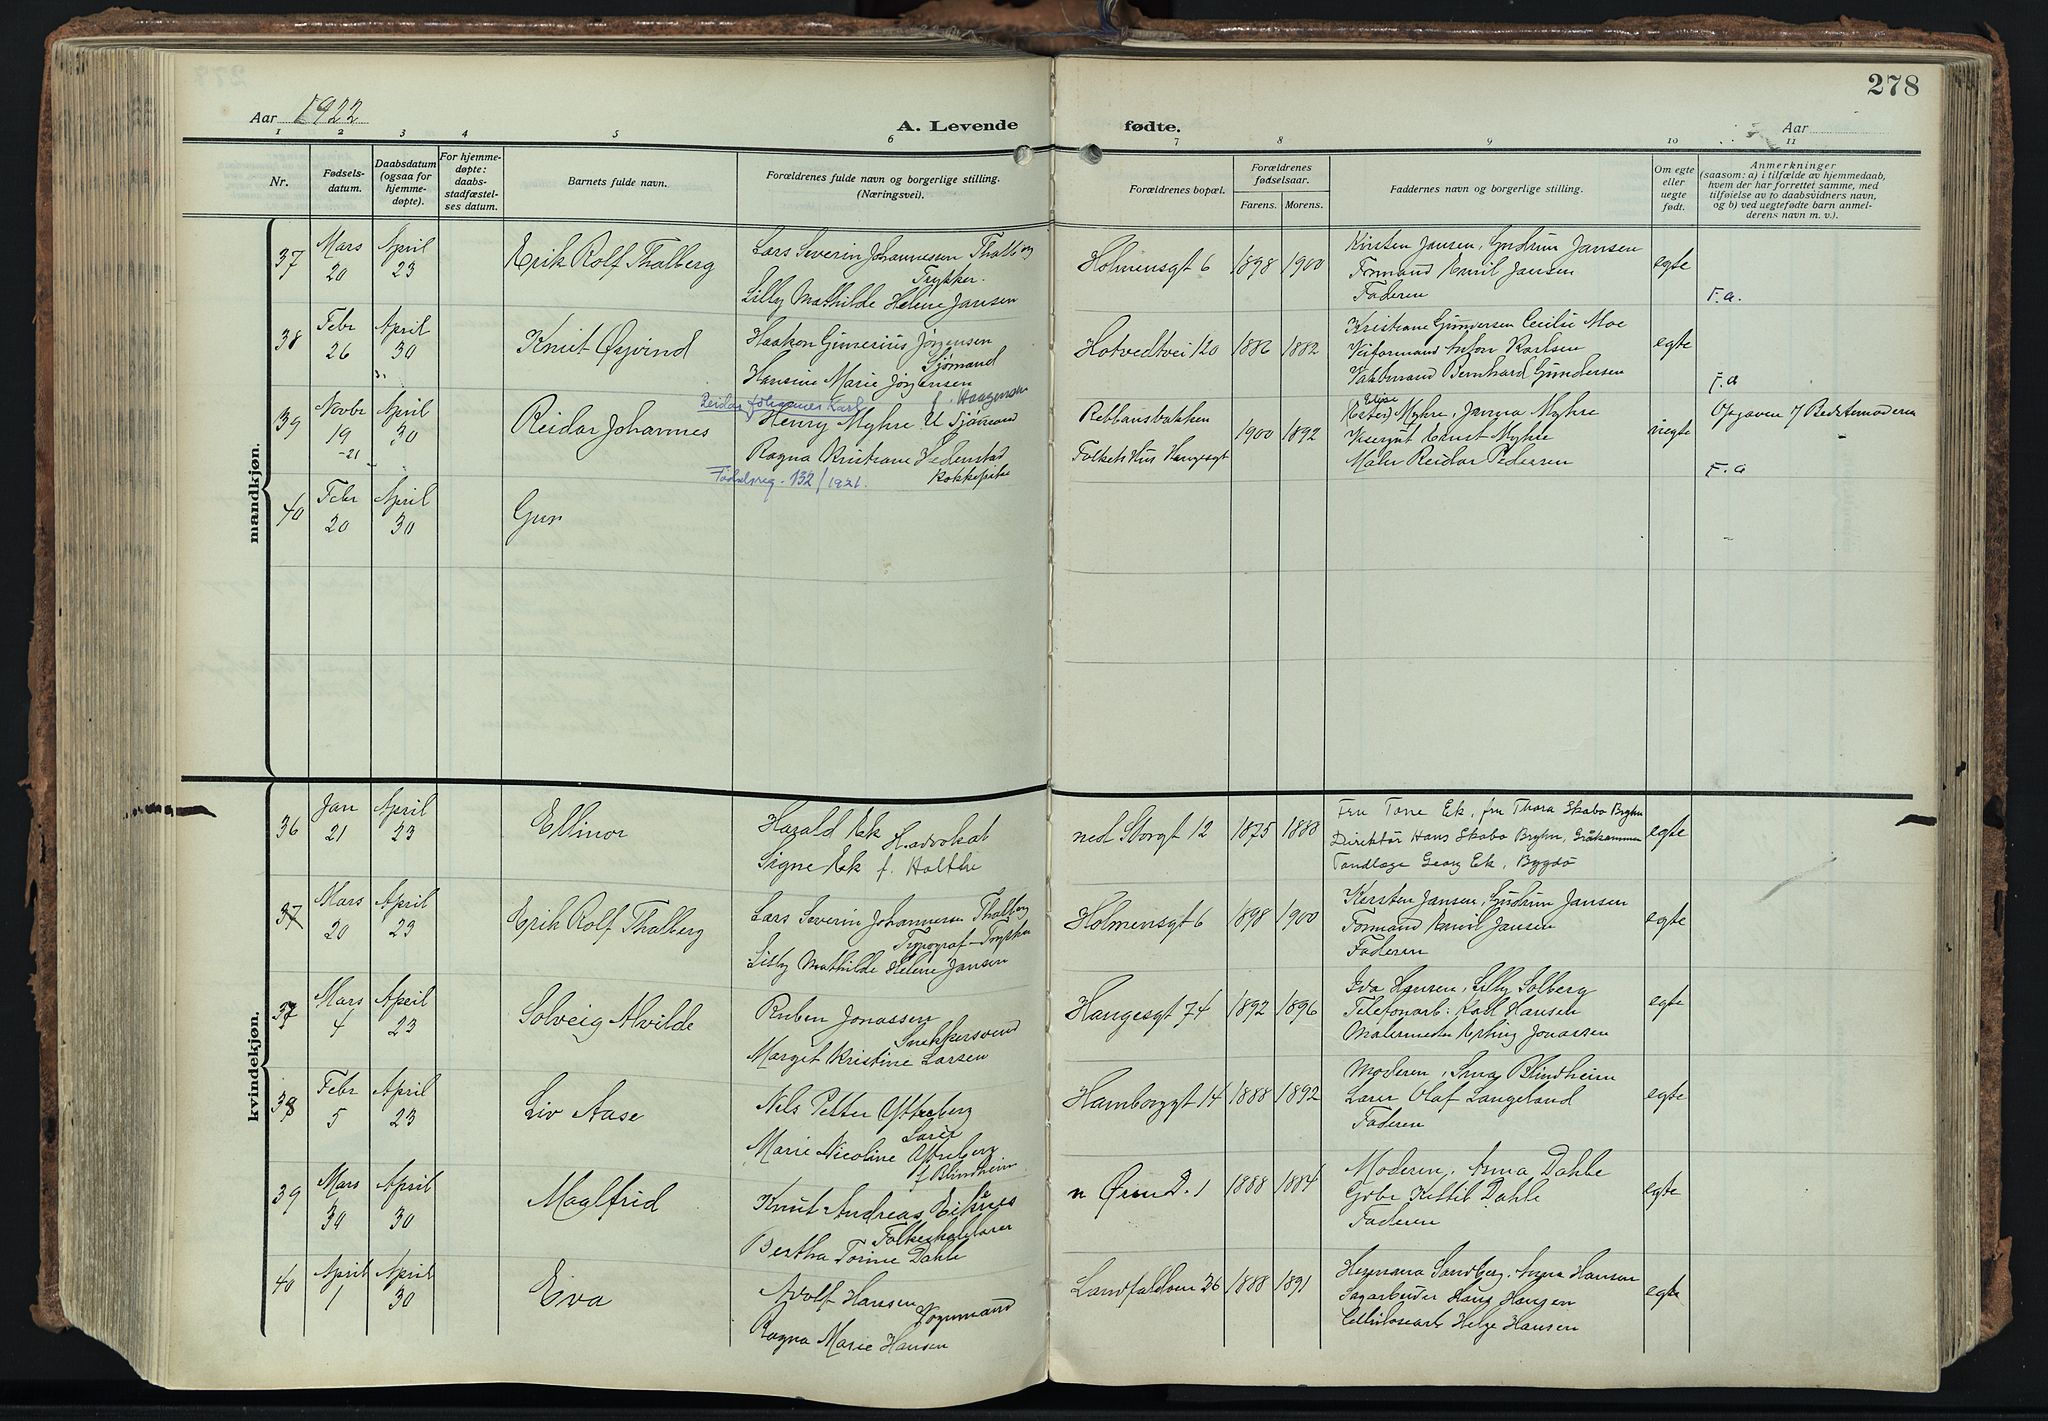 278
Aar 1922
A. Levende fødte.
Aar
1 2 3 4 5 6 7 8 9 10 11
Nr.
Fødsels-
datum.
Daabsdatum
(ogsaa for
hjemme-
døpte).
For hjemme-
døpte:
daabs-
stadfæstel-
ses datum.
Barnets fulde navn.
Forældrenes fulde navn og borgerlige stilling.
(Næringsvei.)
Forældrenes bopæl.
Forældrenes
fødselsaar.
Farens. Morens.
Faddernes navn og borgerlige stilling.
Om egte
eller
uegte
født.
Anmerkninger
(saasom: a) i tilfælde av hjemmedaab,
hvem der har forrettet samme, med
tilføielse av to daabsvidners navn,
og b) ved uegtefødte barn anmel-
derens navn m. v.).
mandkjøn.
37
Mars
20
April
23
Erik Rolf Thalberg
Lars Severin Johannesen Thalberg
Trykker.
Lilly Mathilde Helene Jansen
Holmensgt 6
1898
1900
Kirsten Jansen, Gudrun Jansen
Formand Emil Jansen
Faderen
egte
F.a.
38
Febr
26
April
30
Knut Øyvind
Haakon Gunerius Jørgensen
Sjømand
Hansine Marie Jørgensen
f. Haagensen
Hotvedtvei 120
1886
1882
Kristiane Gundersen Cecilie Moe
Veiformand Anton Karlsen
Vaktmand Bernhard Gundersen
egte
F.a
39
Novbr
19
-21
April
30
Reidar Johannes
Reidar Johannes Karl
Henry Myhre U Sjømand
Ragna Kristiane Hedenstad
Kokkepike
Fødselsreg. 132/1921.
Rebbansbakken
Folkets Hus Haugesgt
1900
1892
Elise
(Ester) Myhre, Janna Myhre
Visergut Ernst Myhre
Maler Reidar Pedersen
uegte
Opgaven af Bedstemoderen
F.a
40
Febr
20
April
30
Gun
kvindekjøn.
36
Jan
21
April
23
Ellinor
Harald Ek
H.advokat
Signe Ek f. Holthe
ned Storgt 12
1875
1888
Fru Tone Ek, fru Thora Skabo Bryhn
Direktør Hans Skabo Bryhn, Gråkammen
Tandlæge Georg Ek, Bygdø
egte
37
Mars
20
April
23
Erik Rolf Thalberg
Lars Severin Johannesen Thalberg
Typograf-Trykker
Lilly Mathilde Helene Jansen
Holmensgt 6
1898
1900
Kirsten Jansen, Gudrun Jansen
Formand Emil Jansen
Faderen
egte
37
Mars
4
April
23
Solveig Alvilde
Ruben Jonassen
Snekkersvend
Margit Kristine Larsen
Haugesgt 74
1892
1896
Eva Hansen, Lilly Solberg
Telefonarb: Karl Hansen
Malermester Erling Jonassen
egte
38
Febr
5
April
23
Liv Aase
Nels Petter Ytterberg
Lærer
Marie Nicoline Ytterberg
f Blindheim
Hamborggt 14
1888
1892
Moderen, Blindheim
Lærer Olaf Langeland
Faderen
egte
39
Mars
30
April
30
Maalfrid
Knut Andreas Eiknes
Bertha Torine Dahle
n Øren D. 1
1888
1884
Moderen, Anna Dahle
Gbr Kittil Dahle
Faderen
egte
40
April
1
April
30
Eva
Adolf Hansen
Vognmand
Ragna Marie Hansen
Landfaldøen 36
1888
1891
Hermana Sandberg, Anna Hansen
Sagarbeider Haug Hansen
Cellulosearb Helge Hansen
egte